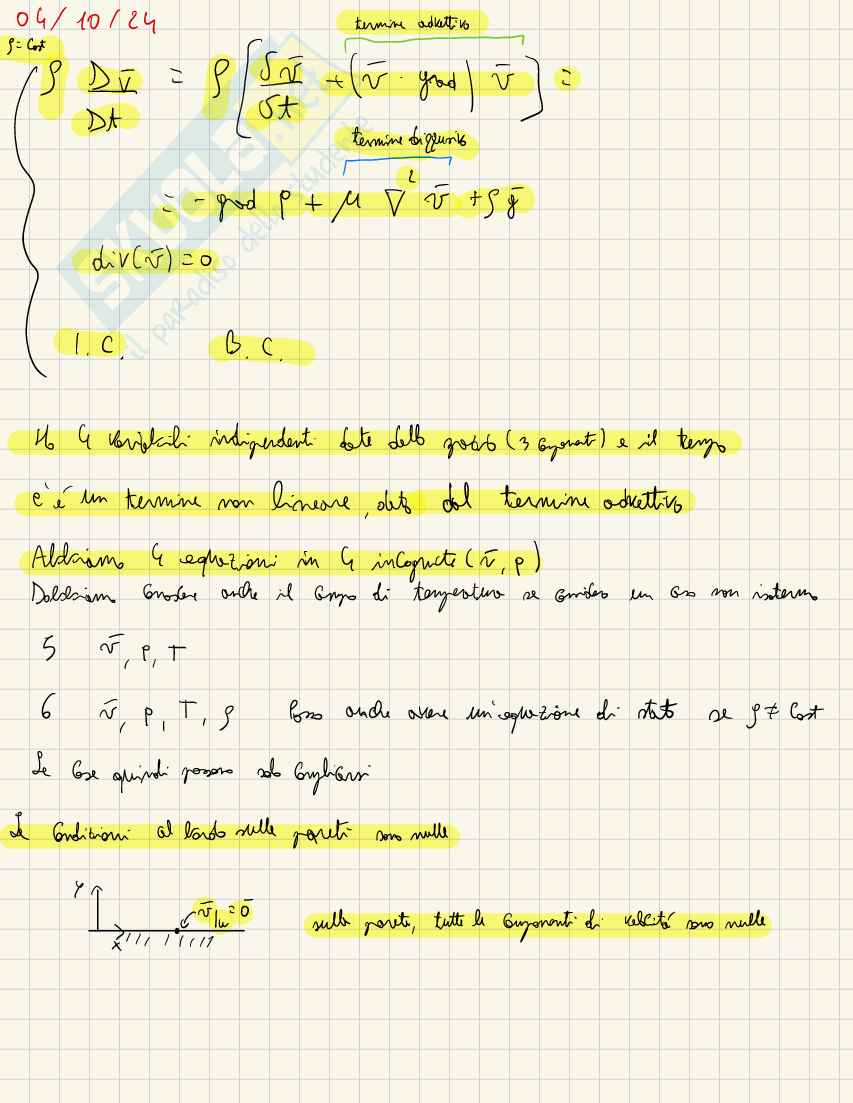 04/10/24
termine advettivo
ρ = Cost
ρ Dv̄/Dt = ρ [ δv̄/δt + (v̄ · grad) v̄ ] =
termine diffusivo
= - grad p + μ ∇² v̄ + ρ ḡ
div(v̄) = 0
I.C. B.C.
Ho 4 variabili indipendenti date dallo spazio (3 componenti) e il tempo
c'è un termine non lineare, dato dal termine advettivo
Abbiamo 4 equazioni in 4 incognite (v̄, p)
Dobbiamo conoscere anche il campo di temperatura se considero un caso non isotermo
5 v̄, p, T
6 v̄, p, T, ρ Posso anche avere un'equazione di stato se ρ ≠ Cost
Le cose quindi possono solo complicarsi
Le Condizioni al bordo sulle pareti sono nulle
y
v̄|w = 0̄
sulla parete, tutte le componenti di velocità sono nulle
x
SKUOLA.net
il paradiso dello studente